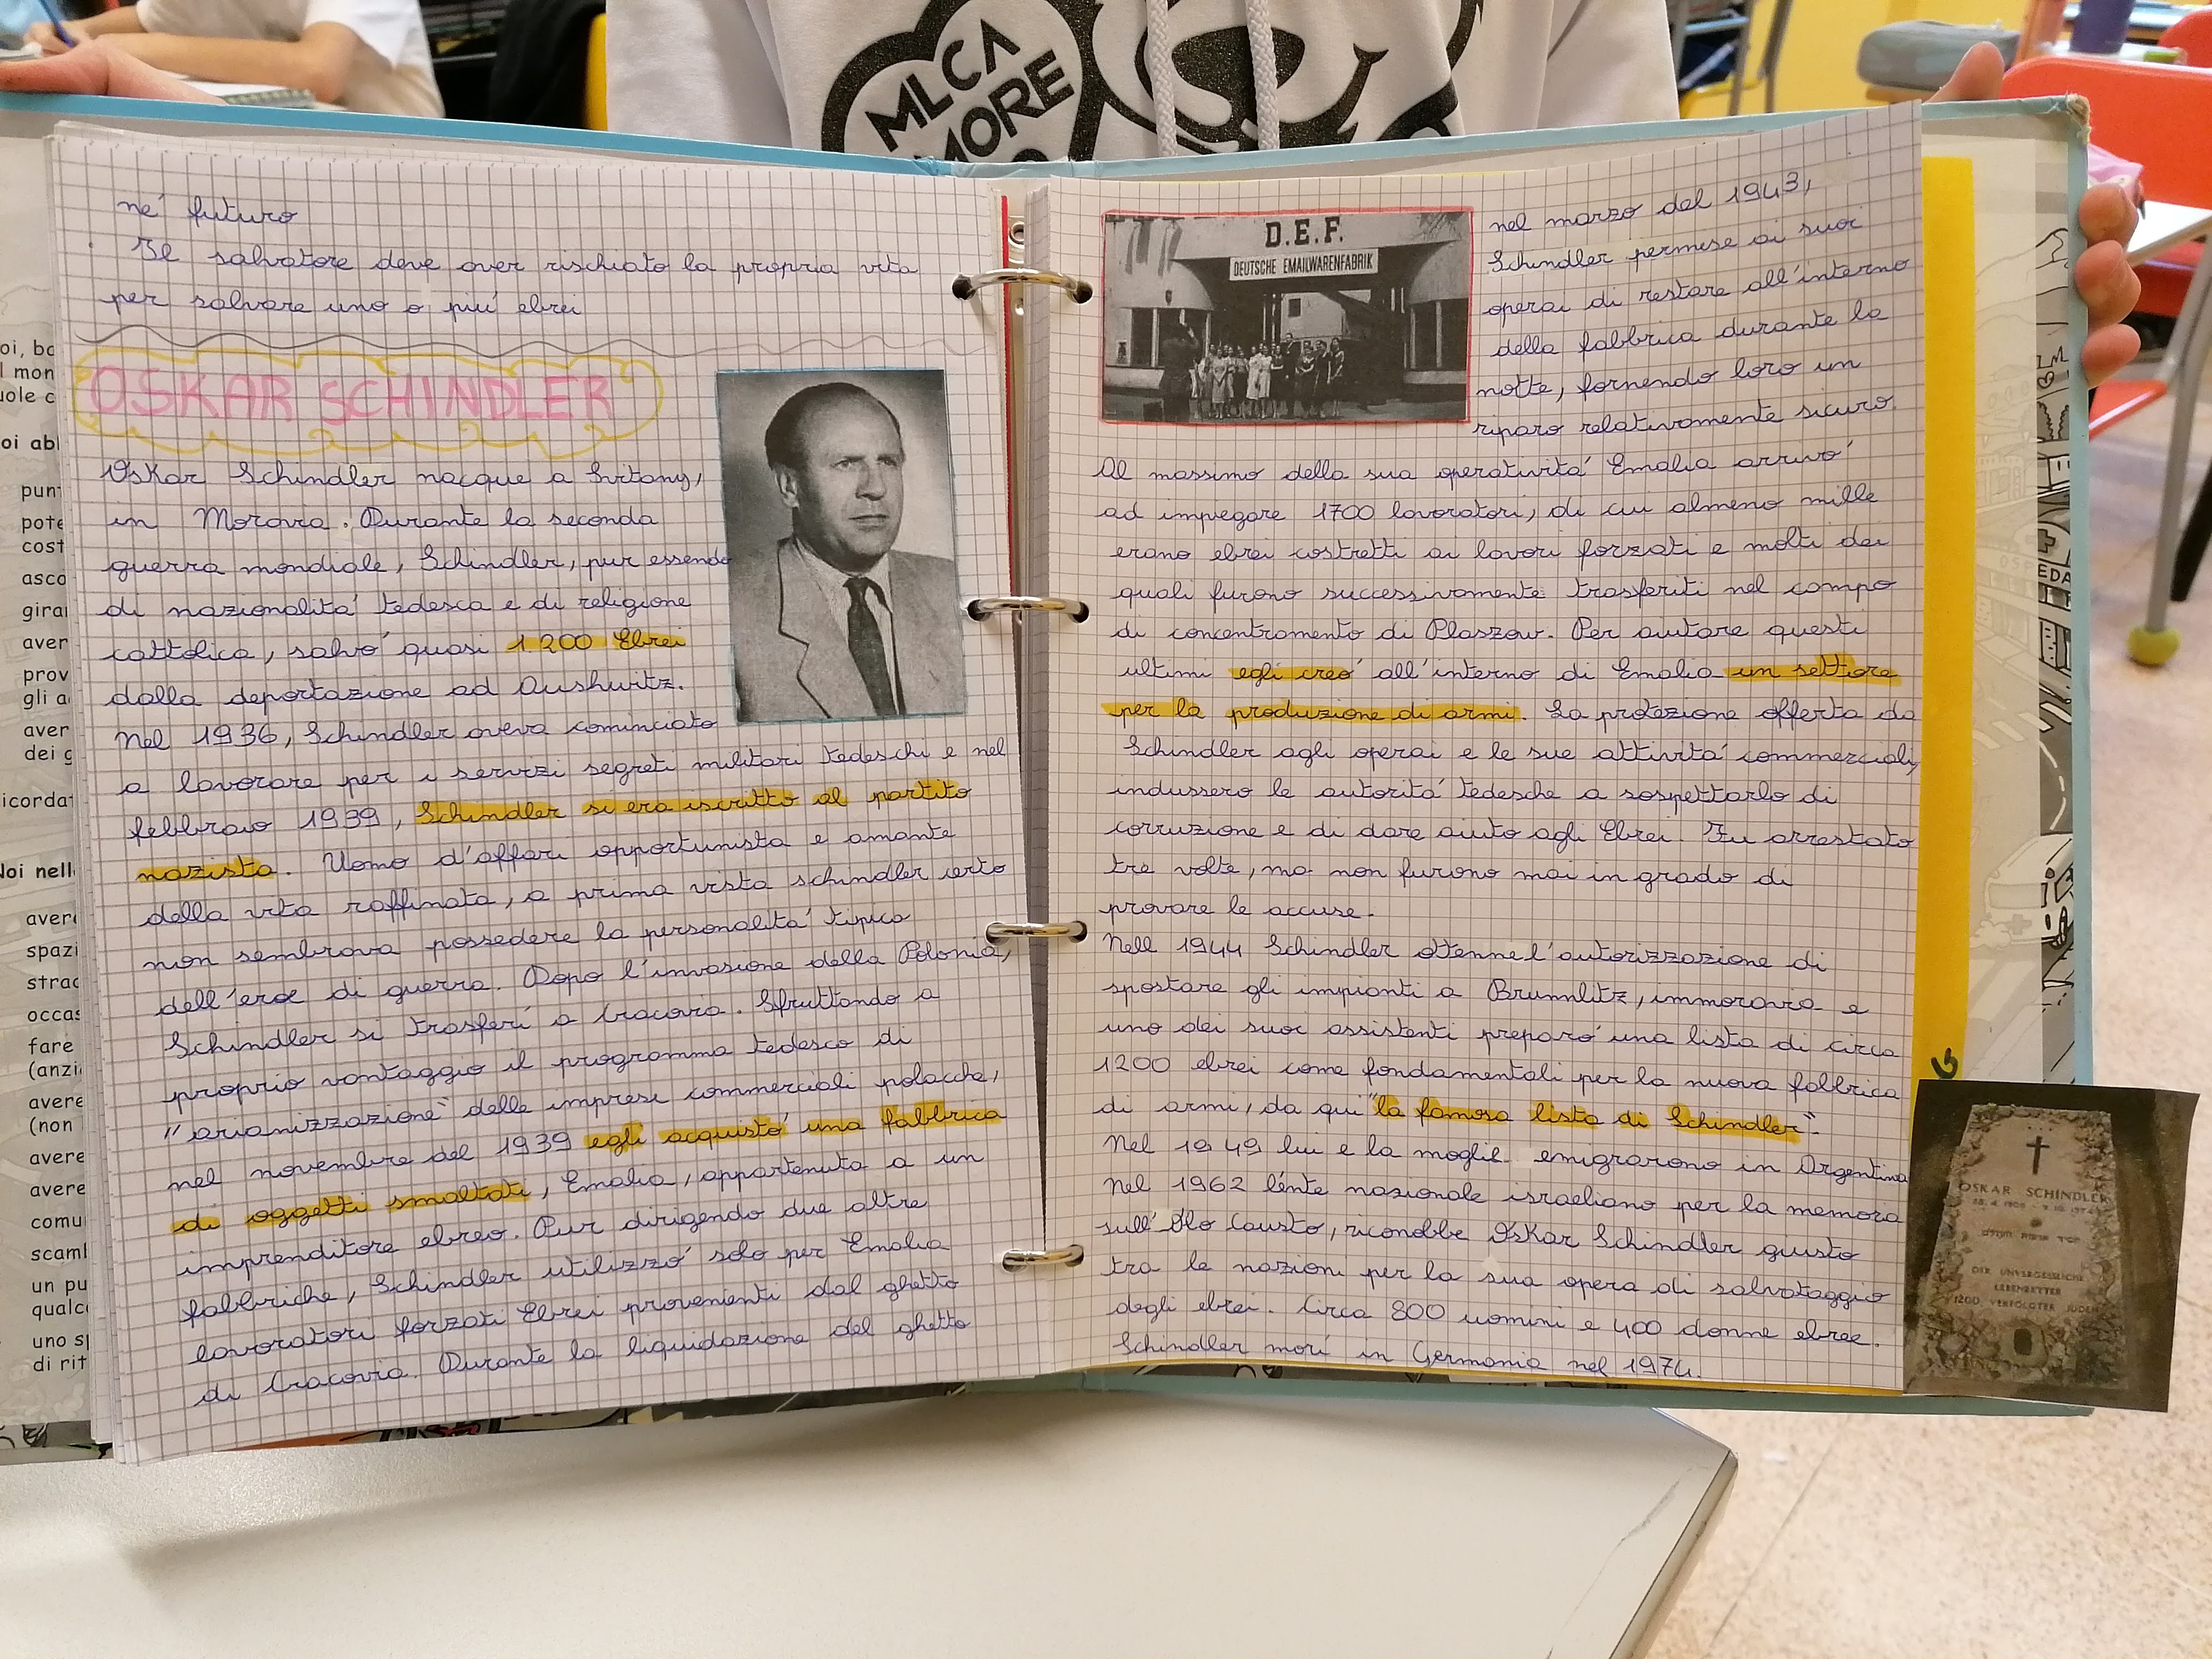 MLCA
MORE
né futuro
Il salvatore deve aver rischiato la propria vita
per salvare uno o piú ebrei
OSKAR SCHINDLER
Oskar Schindler nacque a Svitany,
in Moravia. Durante la seconda
guerra mondiale, Schindler, pur essendo
di nazionalitá tedesca e di religione
cattolica, salvó quasi 1.200 Ebrei
dalla deportazione ad Aushwitz.
Nel 1936, Schindler aveva cominciato
a lavorare per i servizi segreti militari tedeschi e nel
febbraio 1939, Schindler si era iscritto al partito
nazista. Uomo d'affari opportunista e amante
della vita raffinata, a prima vista schindler certo
non sembrava possedere la personalitá tipica
dell'eroe di guerra. Dopo l'invasione della Polonia,
Schindler si trasferí a Cracovia. Sfruttando a
proprio vantaggio il programma tedesco di
"arianizzazione" delle imprese commerciali polacche,
nel novembre del 1939 egli acquistó una fabbrica
di oggetti smaltati, Emalia, appartenuta a un
imprenditore ebreo. Pur dirigendo due altre
fabbriche, Schindler utilizzó solo per Emalia
lavoratori forzati Ebrei provenienti dal ghetto
di Cracovia. Durante la liquidazione del ghetto
D.E.F.
DEUTSCHE EMAILWARENFABRIK
nel marzo del 1943,
Schindler permise ai suoi
operai di restare all'interno
della fabbrica durante la
notte, fornendo loro un
riparo relativamente sicuro.
Al massimo della sua operativitá Emalia arrivó
ad impiegare 1700 lavoratori, di cui almeno mille
erano ebrei costretti ai lavori forzati e molti dei
quali furono successivamente trasferiti nel campo
di concentramento di Plaszow. Per aiutare questi
ultimi egli creó all'interno di Emalia un settore
per la produzione di armi. La protezione offerta da
Schindler agli operai e le sue attivitá commerciali,
indussero le autoritá tedesche a sospettarlo di
corruzione e di dare aiuto agli Ebrei. Fu arrestato
tre volte, ma non furono mai in grado di
provare le accuse.
Nell 1944 Schindler ottenne l'autorizzazione di
spostare gli impianti a Brunnlitz, immoravia e
uno dei suoi assistenti preparó una lista di circa
1200 ebrei come fondamentali per la nuova fabbrica
di armi, da qui "la famosa lista di Schindler".
Nel 1949 lui e la moglie emigrarono in Argentina
Nel 1962 l'énte nazionale israeliano per la memora
sull' Olo Causto, riconobbe Oskar Schindler giusto
tra le nazioni per la sua opera di salvataggio
degli ebrei. Circa 800 uomini e 400 donne ebree.
Schindler morí in Germania nel 1974.
OSKAR SCHINDLER
DER UNVERGESSLICHE
LEBENSRETTER
1200 VERFOLGTER JUDEN